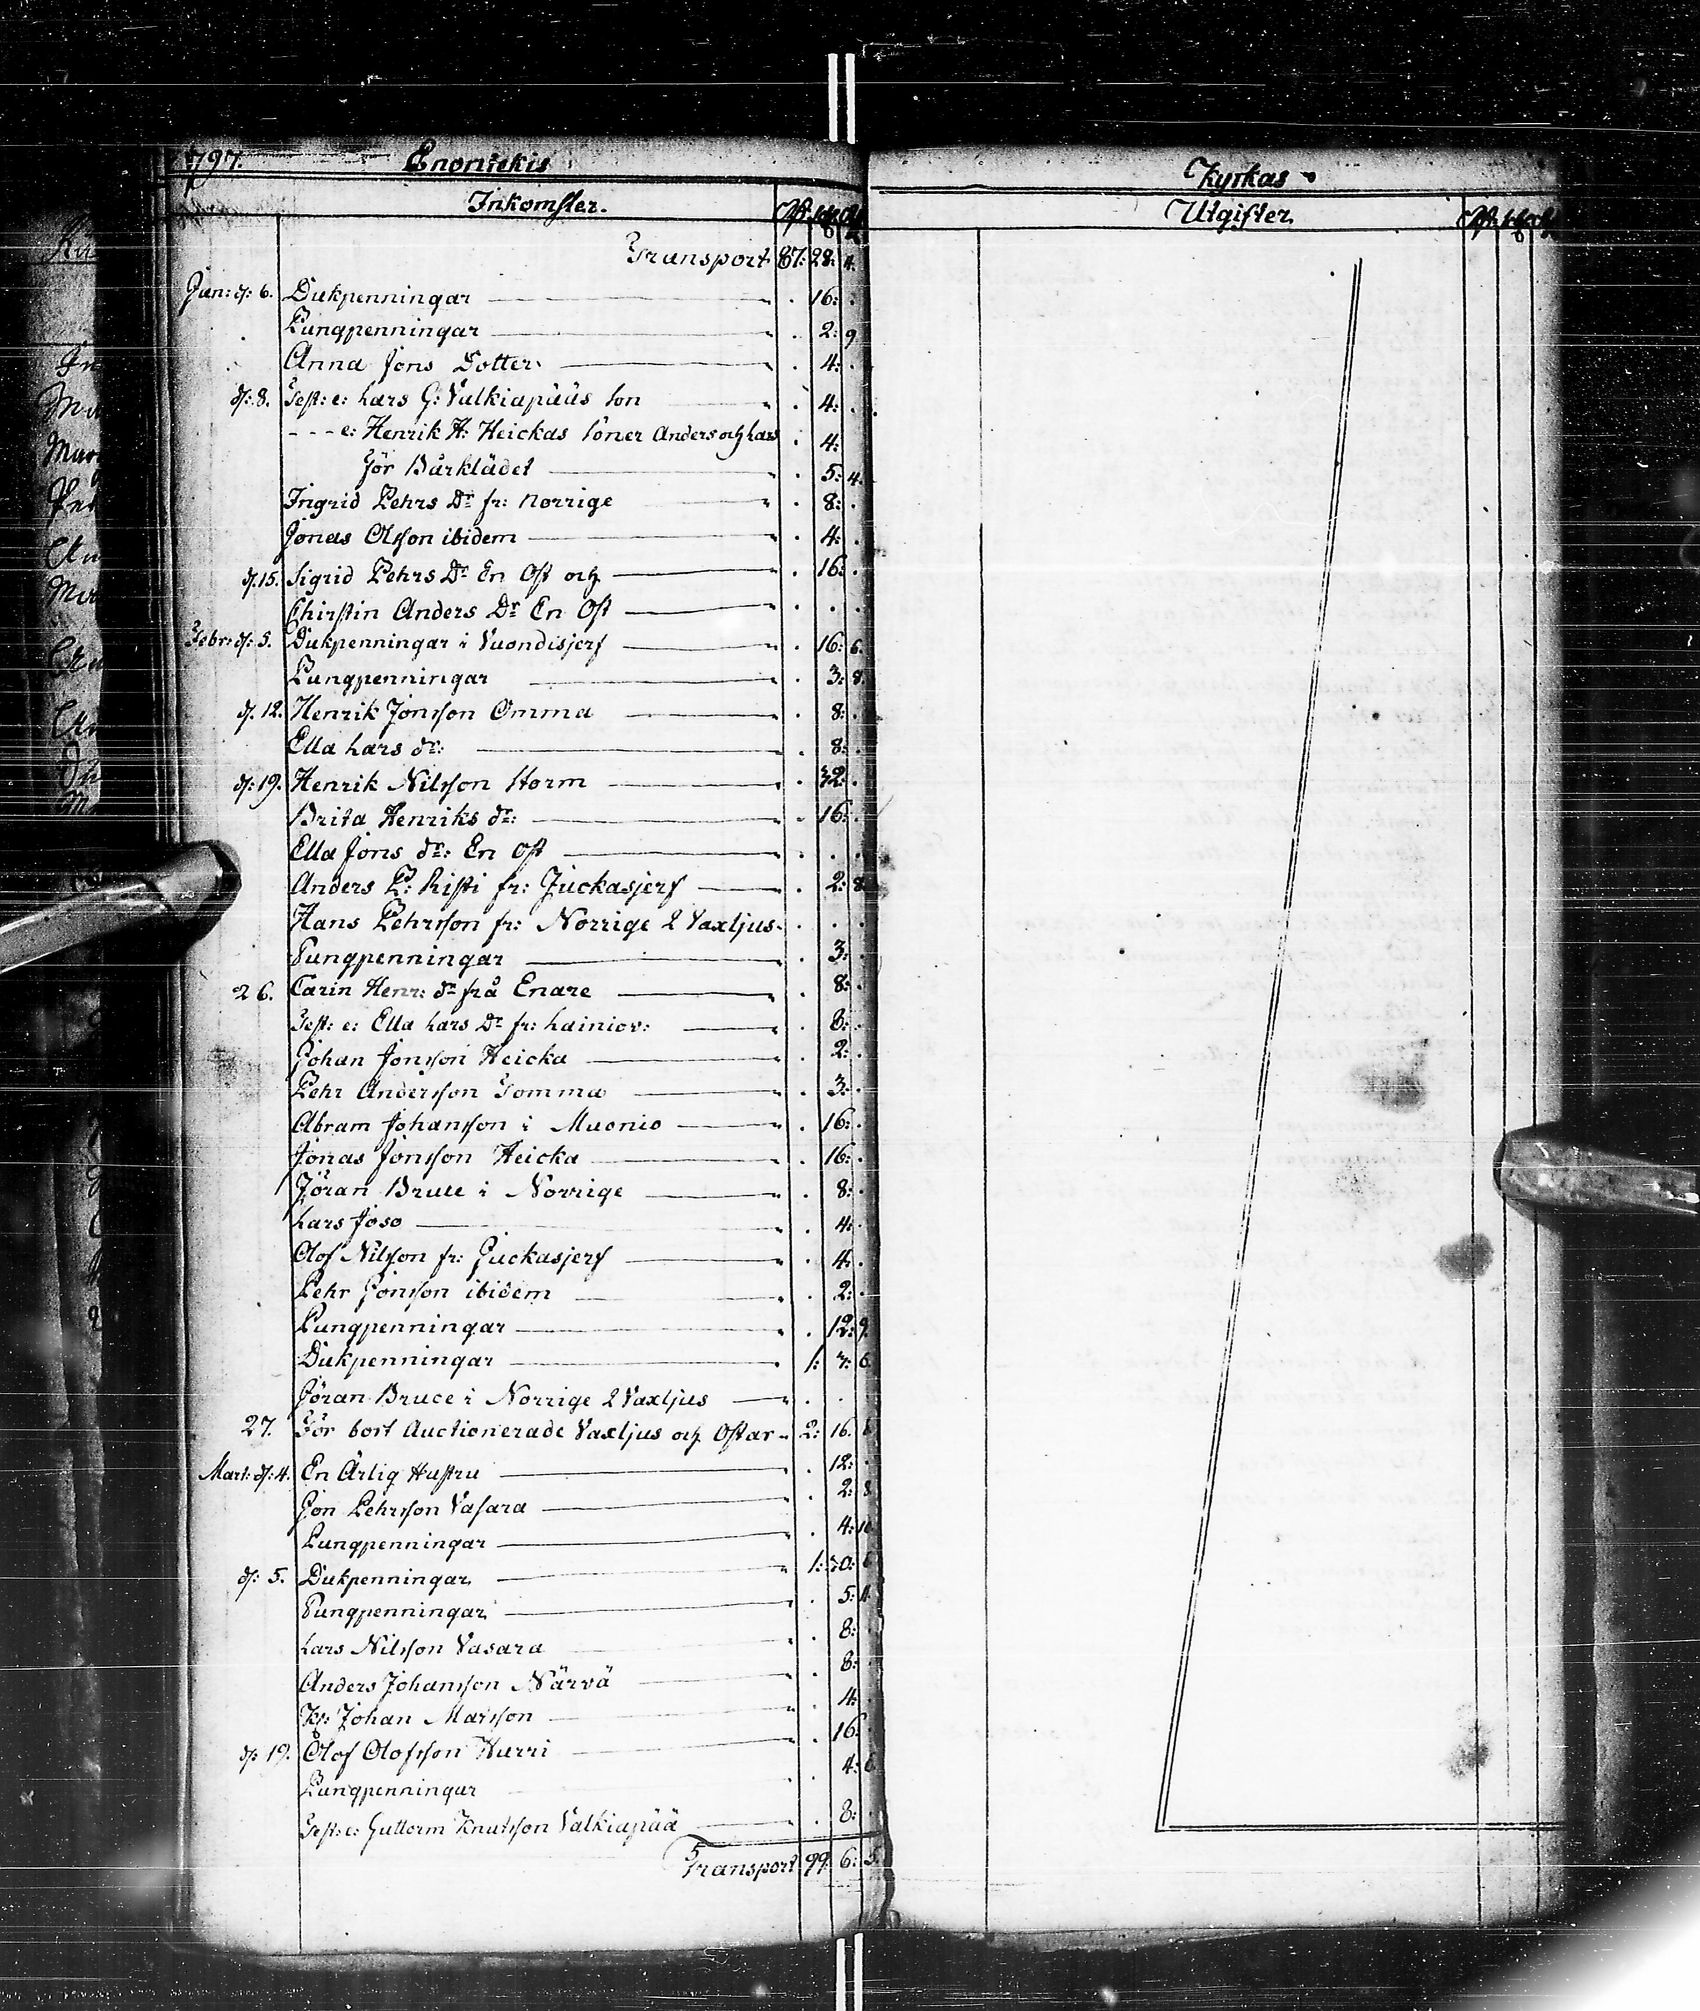 1797. Enontekis
Inkomster.
Transport 87: 28: 4.
Jan: d: 6. Dukpenningar . 16: .
Pungpenningar . 2: 9
Anna Jons Dotter . 4: .
d: 8. Test: e: Lars G: Valkiapääs Son . 4: .
- - - e: Henrik H: Heickas Söner Anders och Lars . 4:
För Bårklädet . 5: 4.
Ingrid Pehrs Dr fr: Norrige . 8: .
Jonas Olsson ibidem . 4: .
d. 15. Sigrid Pehrs Dr En Ost och . 16: .
Chirstin Anders Dr En Ost . . .
Febr: d: 5. Dukpenningar i Vuondisjerf . 16: 6.
Pungpenningar . 3: 8.
d. 12. Henrik Jonsson Omma . 8: .
Ella Lars dr: . 8: .
d: 19. Henrik Nilsson Storm . 32: .
Brita Henriks dr: . 16: .
Ella Jons dr: En Ost . . .
Anders P: Risti fr: Juckasjerf . 2: 8.
Hans Pehrsson fr: Norrige 2 Vaxljus . . .
Pungpenningar . 3: .
26. Carin Henr: dr frå Enare . 8: .
Test: e: Ella Lars Dr fr: Lainiov: . 8: .
Johan Jonsson Heicka . 2: .
Pehr Andersson Tomma . 3: .
Abram Johansson i Muonio . 16: .
Jonas Jonsson Heicka . 16: .
Jöran Bruce i Norrige . 8: .
Lars Joso . 4: .
Olof Nilsson fr: Juckasjerf . 4: .
Pehr Jonsson ibidem . 2: .
Pungpenningar . 12: 9.
Dukpenningar 1: 3: 6.
Jöran Bruce i Norrige 2 Vaxljus . .
27. För bort Auctionerade Vaxljus och Ostar 2: 16. 6
Mart: d: 4. En Ärlig Hustru . 12: .
Jon Pehrsson Vasara . 2: 8
Pungpenningar . 4: 10
d: 5. Dukpenningar 1: 30: 6
Pungpenningar . 5: 4.
Lars Nilsson Vasara . 8: .
Anders Johansson Närvä . 8: .
Johan Marsson . 4: .
d: 19. Olof Olofsson Hurri . 16. .
Pungpenningar . 4: 6
Test: e: Guttorm Knutsson Valkiapää . 8: .
Transport 99. 6: 5.
Kyrkas
Utgifter